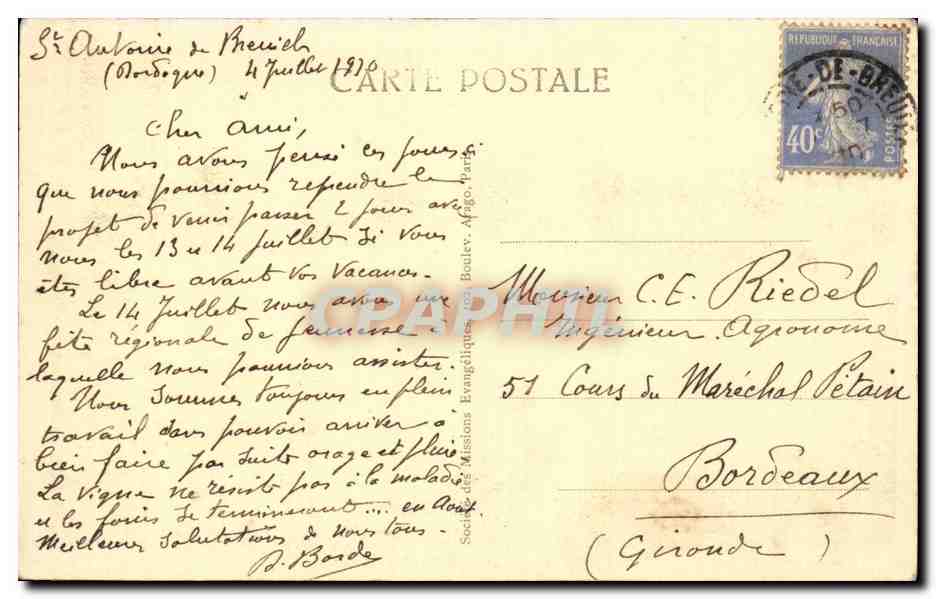 St Antoine de Breuilh
(Dordogne) 4 Juillet 1930
CARTE POSTALE
Cher Ami,
Nous avons pensé ces jours ci
que nous pourrions reprendre le
projet de venir passer 2 jours avec
nous les 13 et 14 Juillet si vous
êtes libre avant vos vacances.
Le 14 Juillet nous avons une
fête régionale de jeunesse à
laquelle nous pourrions assister.
Nous sommes toujours en plein
travail sans pouvoir arriver à
bien faire par suite orage et pluie
La vigne ne résiste pas à la maladie
et les foins se termineront... en Août.
Meilleures salutations de nous tous.
Borde
Société des Missions Evangéliques, 102, Boulev. Arago, Paris
REPUBLIQUE FRANÇAISE
40c
POSTES
NE-DE-BREUIL
Monsieur C.E. Riedel
Ingénieur Agronome
51 Cours du Maréchal Pétain
Bordeaux
(Gironde)
CPAPHIL